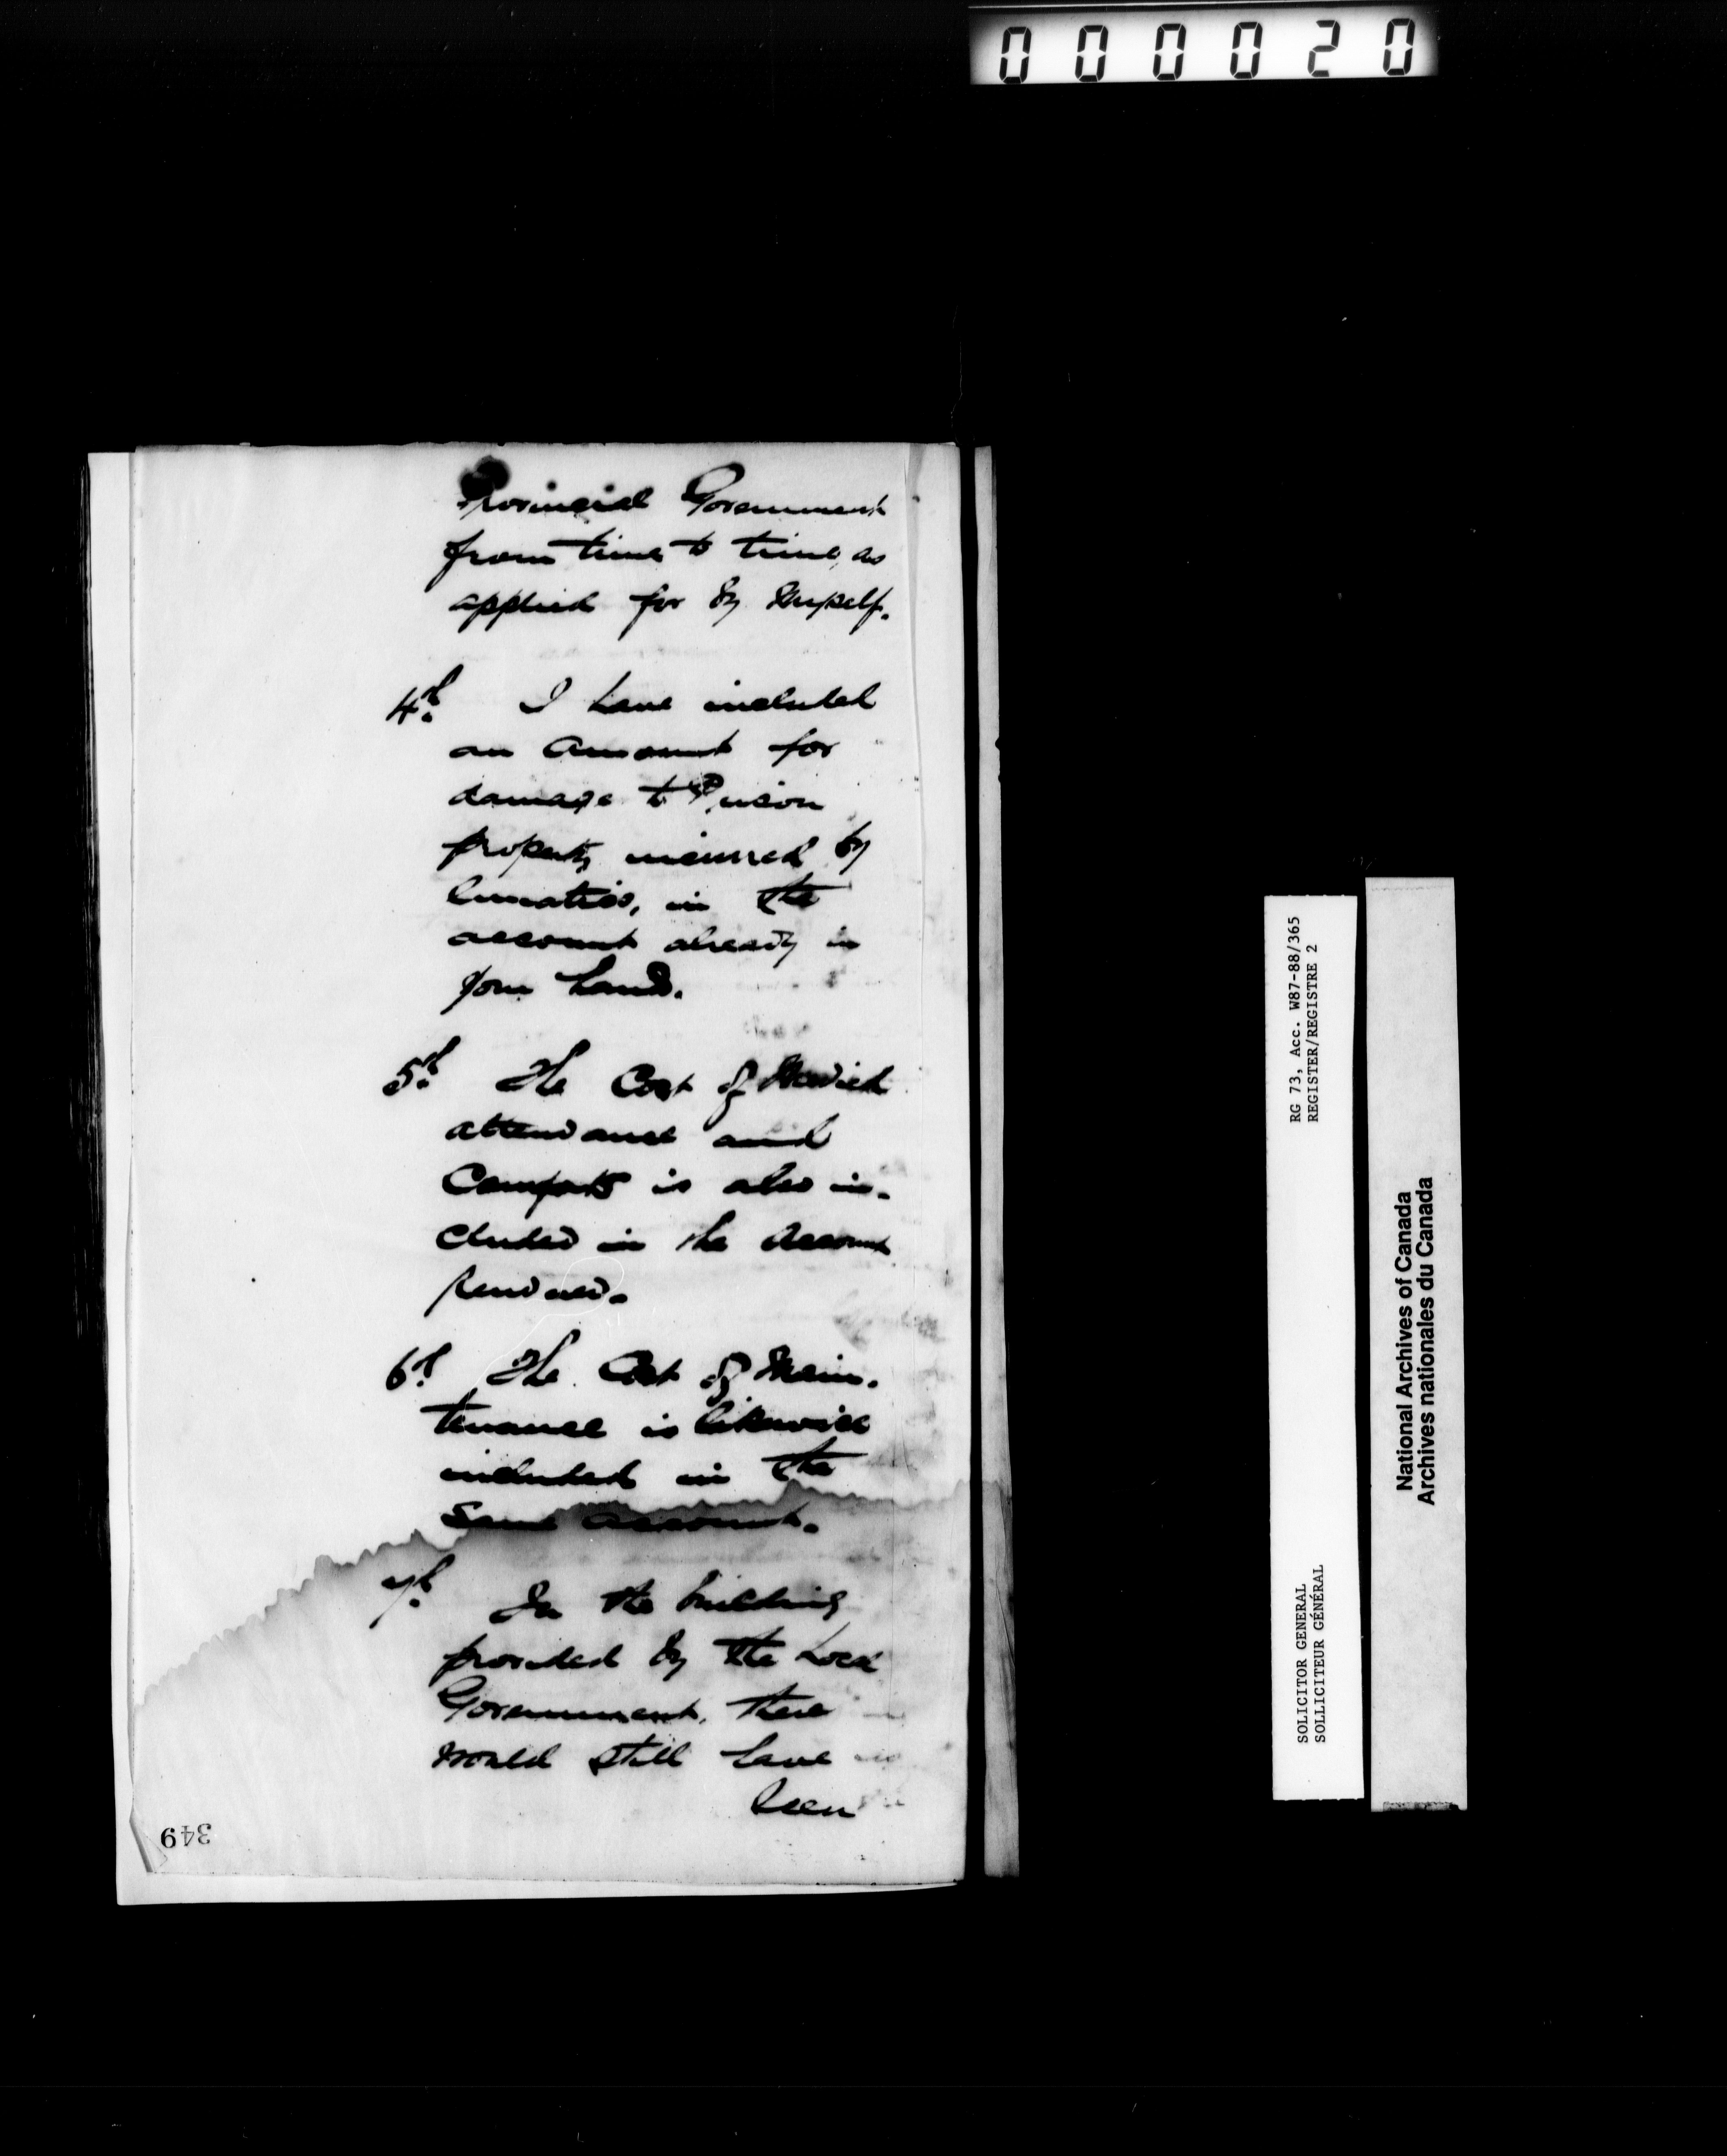 000020
Provincial Government
from time to time, as
applied for by myself.
4th. I have included
an amount for
damage to Prison
property incurred by
lunatics, in the
account already in
your hands.
5th. The Cost of Medical
attendance and
Comforts is also in-
cluded in the account
rendered.
6th. The Cost of Main-
tenance is likewise
included in the
same account.
7th. In the building
provided by the Local
Government, there
would still have
been
349
RG 73, Acc. W87-88/365
REGISTER/REGISTRE 2
SOLICITOR GENERAL
SOLLICITEUR GÉNÉRAL
National Archives of Canada
Archives nationales du Canada